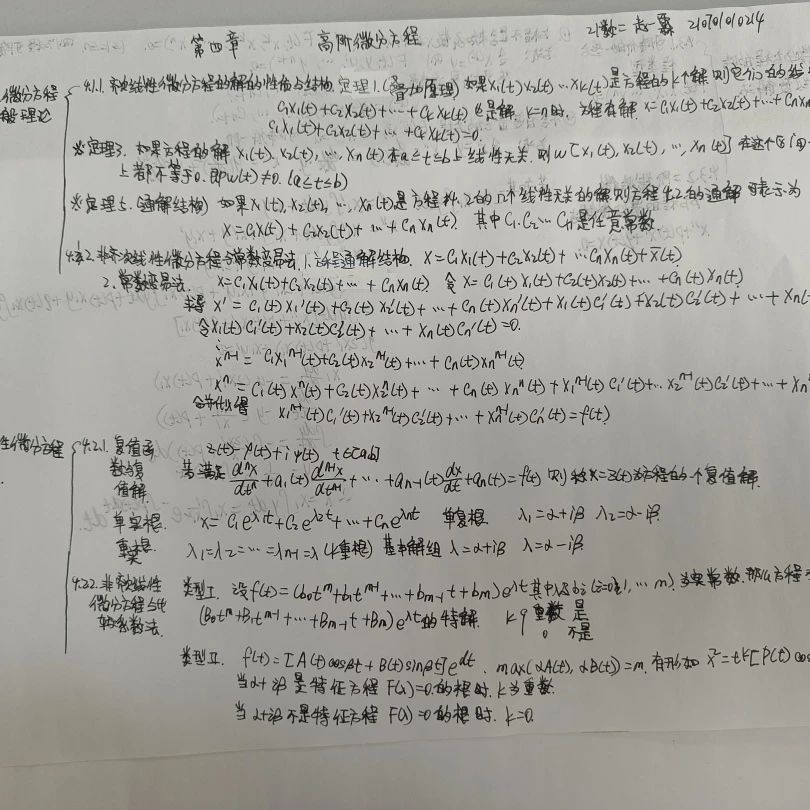 第四章 高阶微分方程 21数二 赵一霖
微分方程
般理论
4.1.1. 齐次线性微分方程的解的性质与结构. 定理1.(叠加原理) 如果x₁(t) x₂(t) … xₖ(t)是方程的k个解 则它们的线
C₁x₁(t)+C₂x₂(t)+…+Cₖxₖ(t) 也是解. k=n时, 方程有解 x=C₁x₁(t)+C₂x₂(t)+…+Cₙxₙ
C₁x₁(t)+C₂x₂(t)+…+Cₖxₖ(t)=0.
※定理3. 如果方程的解 x₁(t), x₂(t), …, xₙ(t) 在a≤t≤b上线性无关, 则W[x₁(t), x₂(t), …, xₙ(t)] 在这个区间
上都不等于0. 即W(t)≠0. (a≤t≤b)
※定理5. (通解结构) 如果x₁(t), x₂(t), …, xₙ(t)是方程4.2的n个线性无关的解, 则方程4.2的通解可表示为
x=C₁x(t)+C₂x₂(t)+…+Cₙxₙ(t). 其中C₁.C₂…Cₙ是任意常数.
4.1.2. 非齐次线性微分方程与常数变易法. 1.方程通解结构. x=C₁x₁(t)+C₂x₂(t)+…Cₙxₙ(t)+x̄(t).
2. 常数变易法. x=C₁x₁(t)+C₂x₂(t)+…+Cₙxₙ(t). 令x=C₁(t)x₁(t)+C₂(t)x₂(t)+…+Cₙ(t)xₙ(t).
求得 x'=C₁(t)x₁'(t)+C₂(t)x₂'(t)+…+Cₙ(t)xₙ'(t)+x₁(t)C₁'(t)+x₂(t)C₂'(t)+…+xₙ(t)
令x₁(t)C₁'(t)+x₂(t)C₂'(t)+…+xₙ(t)Cₙ'(t)=0.
⋮
xⁿ⁻¹=C₁x₁ⁿ⁻¹(t)+C₂(t)x₂ⁿ⁻¹(t)+…+Cₙ(t)xₙⁿ⁻¹(t).
xⁿ=C₁(t)x₁ⁿ(t)+C₂(t)x₂ⁿ(t)+…+Cₙ(t)xₙⁿ(t)+x₁ⁿ⁻¹(t)C₁'(t)+…x₂ⁿ⁻¹(t)C₂'(t)+…+xₙ
合并代入得 x₁ⁿ⁻¹(t)C₁'(t)+x₂ⁿ⁻¹(t)C₂'(t)+…+xₙⁿ⁻¹(t)Cₙ'(t)=f(t)
性微分方程
4.2.1. 复值函 z(t)=φ(t)+iψ(t) t∈[ab]
数与复
值解
若满足 dⁿx/dtⁿ+a₁(t)dⁿ⁻¹x/dtⁿ⁻¹+…+aₙ₋₁(t)dx/dt+aₙ(t)=f(t) 则称x=z(t)为方程的一个复值解.
单实根. x=C₁e^λ₁t+C₂e^λ₂t+…+Cₙe^λₙt 单复根. λ₁=α+iβ λ₂=α-iβ.
重根. λ₁=λ₂=…=λₙ₋₁=λ(k重根) 基本解组 λ=α+iβ λ=α-iβ.
4.2.2. 非齐线性
微分方程与比
较系数法.
类型I. 设f(t)=(b₀tᵐ+b₁tᵐ⁻¹+…+bₘ₋₁t+bₘ)e^λt 其中 为实常数. 那么方程
(B₀tᵐ+B₁tᵐ⁻¹+…+Bₘ₋₁t+Bₘ)e^λt的特解. k{重数 是
0 不是
类型II. f(t)=[A(t)cosβt+B(t)sinβt]e^αt. max(∂A(t), ∂B(t))=m. 有形如 x̃=tᵏ[P(t)cos
当α+iβ是特征方程 F(λ)=0.的根时. k为重数.
当α+iβ不是特征方程 F(λ)=0的根时. k=0.